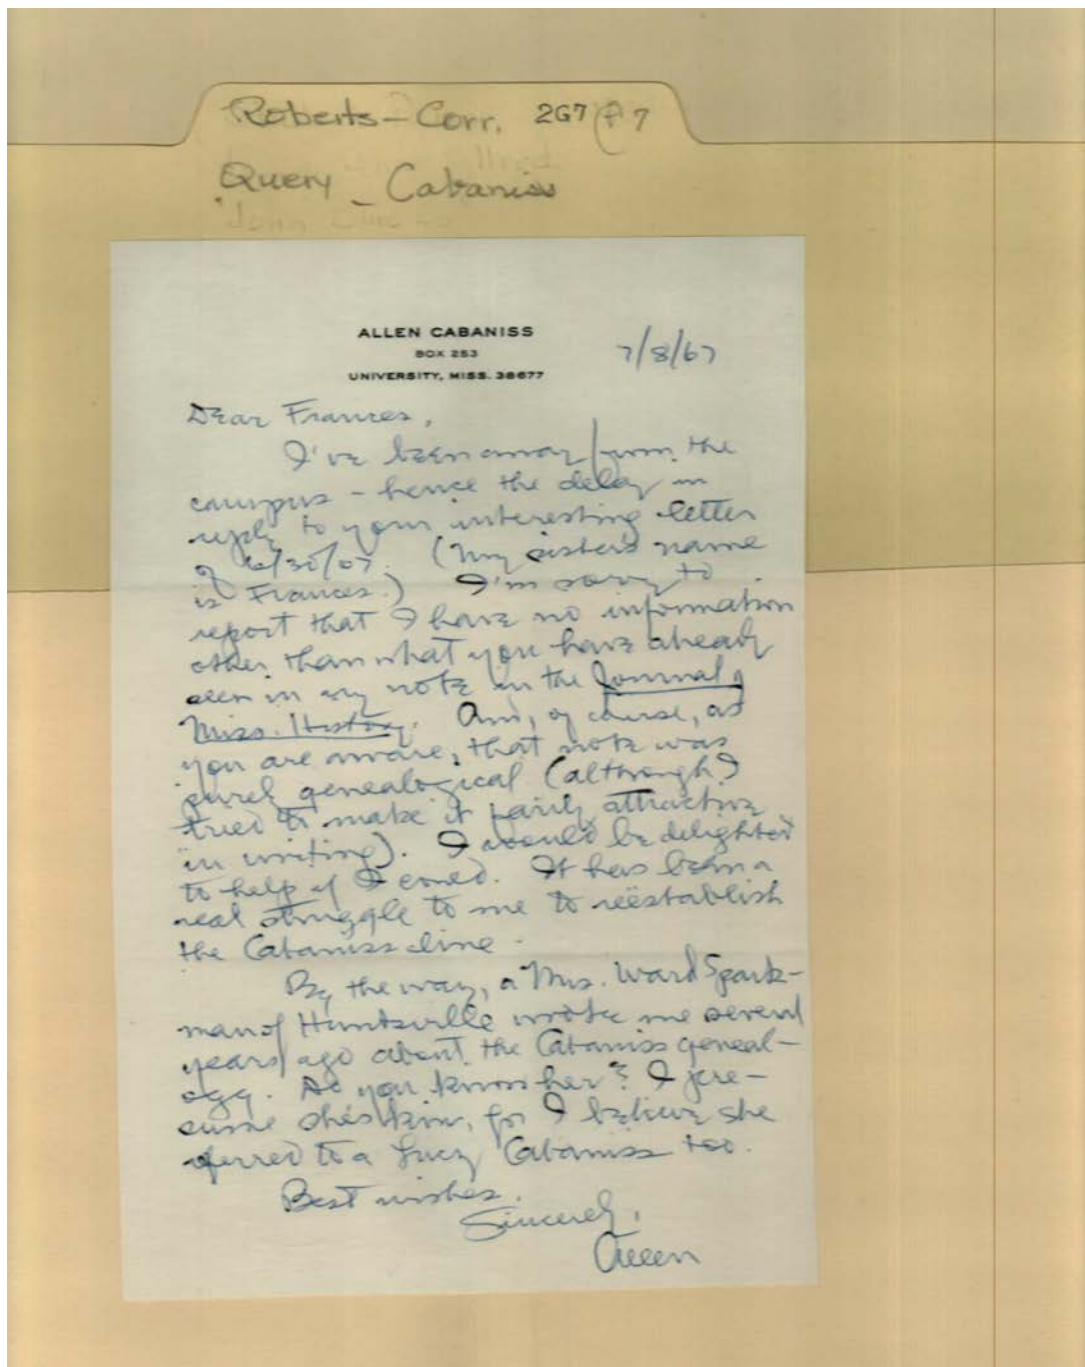 Roberts - Corr. 2G7 (F7
Query - Cabaniss
ALLEN CABANISS
BOX 253
UNIVERSITY, MISS. 38677
7/8/67
Dear Frances,
I've been away from the
campus - hence the delay in
reply to your interesting letter
of 6/30/67. (My sister's name
is Frances.) I'm sorry to
report that I have no information
other than what you have already
seen in my note in the Journal of
Miss. History. And, of course, as
you are aware, that note was
purely genealogical (although I
tried to make it fairly attractive
in writing). I would be delighted
to help if I could. It has been a
real struggle to me to reëstablish
the Cabaniss line.
By the way, a Mrs. Ward Spark-
man of Huntsville wrote me several
years ago about the Cabaniss geneal-
ogy. Do you know her? I pre-
sume she's kin, for I believe she
referred to a Lucy Cabaniss too.
Best wishes.
Sincerely,
Allen